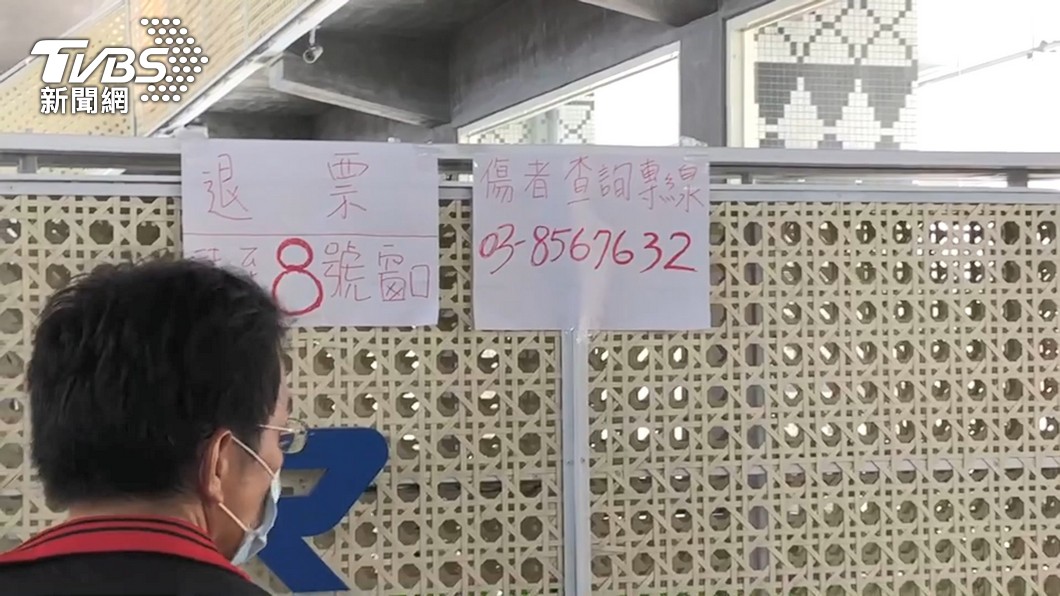 TVBS
新聞網
退票
至8號窗口
傷者查詢專線
03-8567632
R